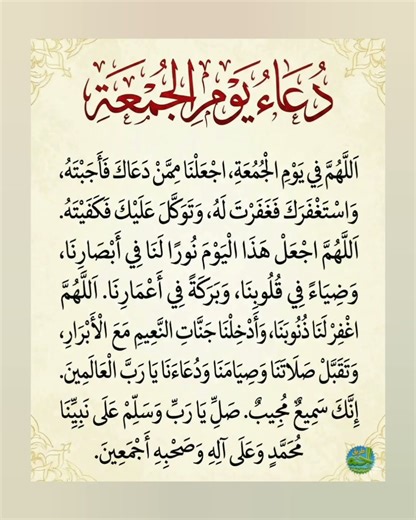 دُعَاءُ يَوْمِ الْجُمُعَةِ
اَللَّهُمَّ فِي يَوْمِ الْجُمُعَةِ، اجْعَلْنَا مِمَّنْ دَعَاكَ فَأَجَبْتَهُ،
وَاسْتَغْفَرَكَ فَغَفَرْتَ لَهُ، وَتَوَكَّلَ عَلَيْكَ فَكَفَيْتَهُ.
اَللَّهُمَّ اجْعَلْ هَذَا الْيَوْمَ نُورًا لَنَا فِي أَبْصَارِنَا،
وَضِيَاءً فِي قُلُوبِنَا، وَبَرَكَةً فِي أَعْمَارِنَا. اَللَّهُمَّ
اغْفِرْ لَنَا ذُنُوبَنَا، وَأَدْخِلْنَا جَنَّاتِ النَّعِيمِ مَعَ الْأَبْرَارِ،
وَتَقَبَّلْ صَلَاتَنَا وَصِيَامَنَا وَدُعَاءَنَا يَا رَبَّ الْعَالَمِينَ.
إِنَّكَ سَمِيعٌ مُجِيبٌ. صَلِّ يَا رَبِّ وَسَلِّمْ عَلَى نَبِيِّنَا
مُحَمَّدٍ وَعَلَى آلِهِ وَصَحْبِهِ أَجْمَعِينَ.